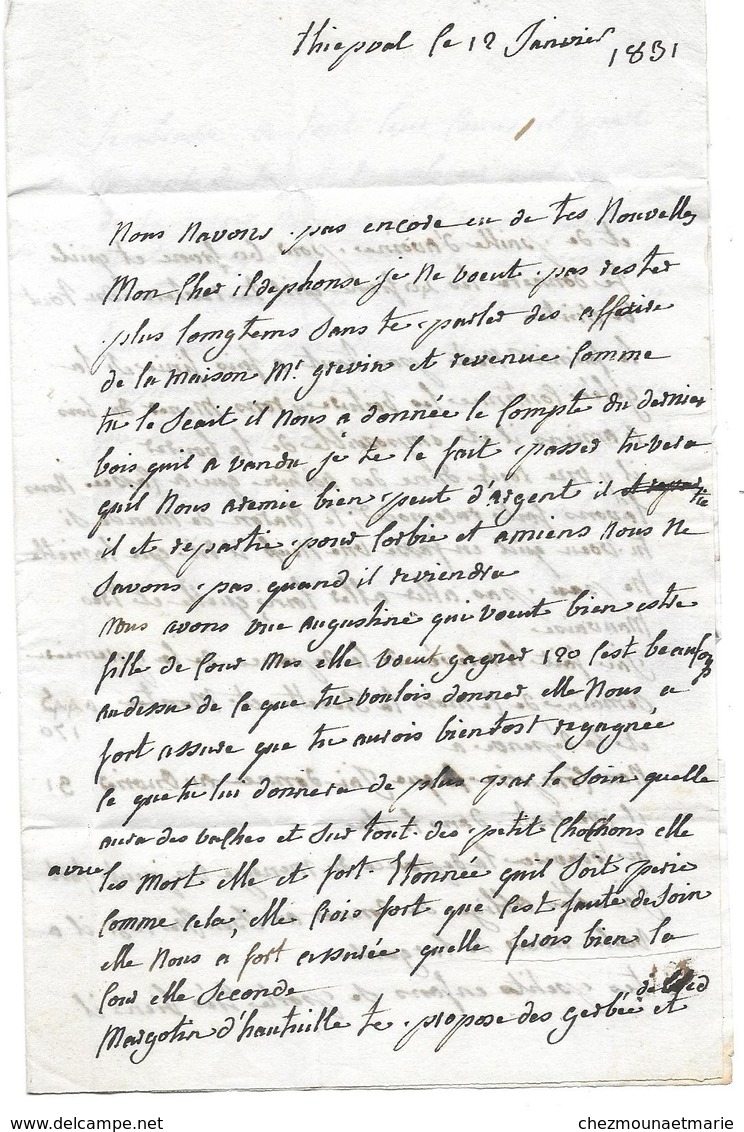 thiepval le 12 Janvier 1831
Nous Navons pas encore eu de tes Nouvelles
Mon Cher ildephonse je Ne voeut pas rester
plus longtems Sans te parler des afferire
de la Maison Mr grevin et revenue Comme
tu le Scait il Nous a donnée le Compte du dernier
bois quil a vandu je te le fait passer tu vera
quil Nous aremie bien peut d'argent il
il et repartie pour Corbie et amiens Nous Ne
Savons pas quand il reviendra
Nous avons vue augustine qui voeut bien estre
fille de Cour Mes elle voeut gagner 120 C'est beaucoup
audessu de Ce que tu voulois donner elle Nous a
fort assure que tu aurois bientost regagnée
Ce que tu lui donnera de plus par le Soin quelle
aura des vaches et Sur tout des petit Chochons elle
a vue les Mort elle et fort Etonnée quil Soit perie
Comme Cela, elle Crois fort que C'est faute de Soin
elle Nous a fort assurée quelle ferois bien la
Cour elle Seconde
Margotin d'hautuille te propose des gerbée de bled et
chezmounaetmarie